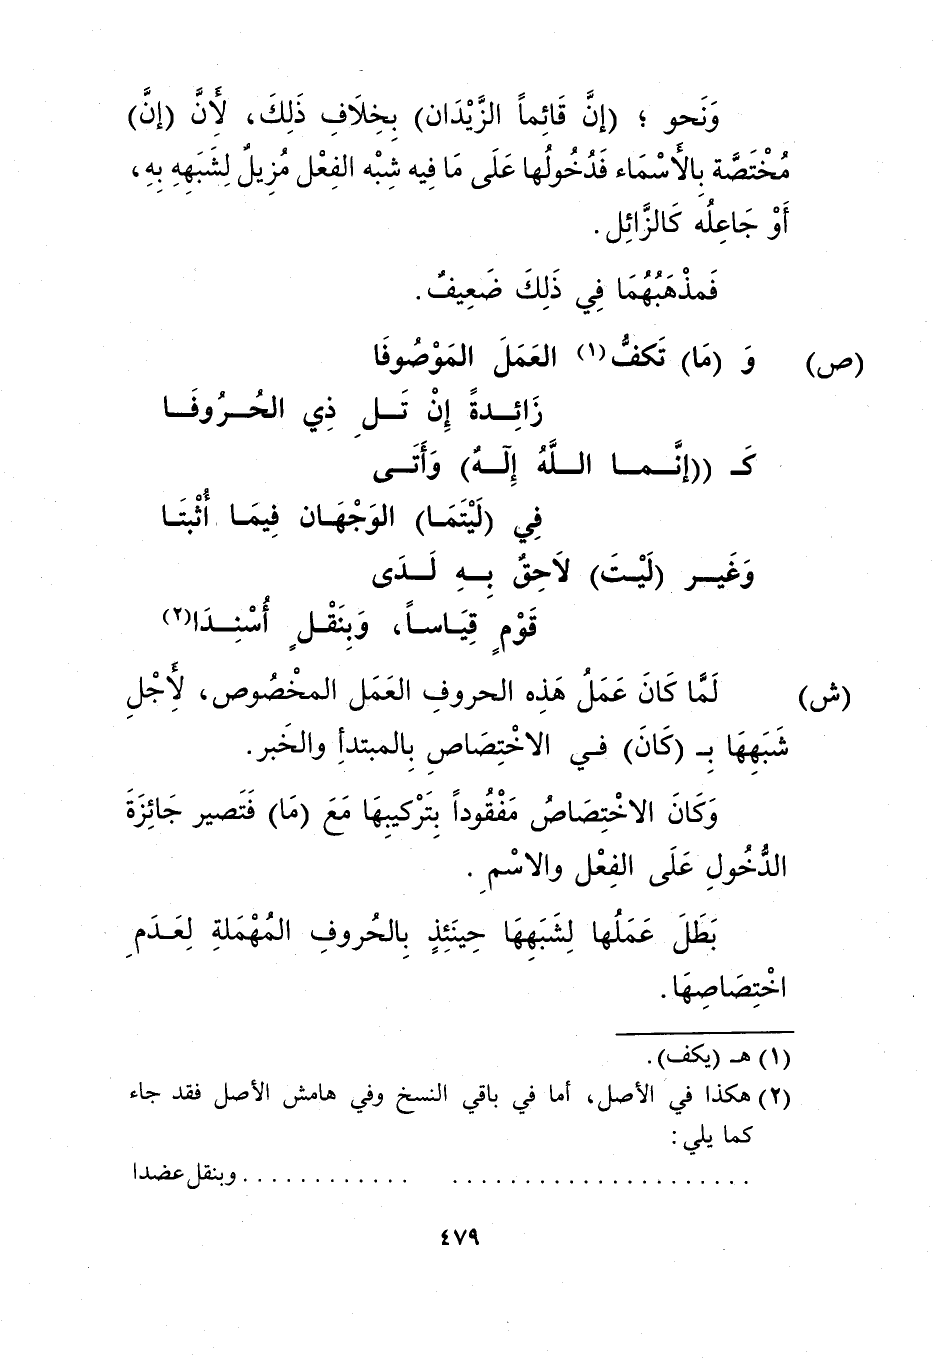 وَنَحو ؛ (إنَّ قَائِماً الزَّيْدَان) بِخِلَافِ ذَلِكَ، لأَنَّ (إنَّ)
مُخْتَصَّة بِالأَسْمَاء فَدُخُولُها عَلَى مَا فيه شِبْه الفِعْل مُزِيلٌ لِشَبَهِهِ بِهِ،
أَوْ جَاعِلُه كَالزَّائِل.
فَمذْهَبُهُمَا فِي ذَلِكَ ضَعِيفٌ.
(ص) وَ (مَا) تَكفُّ(١) العَمَلَ المَوْصُوفَا
زَائِـدةً إنْ تَـلِ ذِي الحُـرُوفَـا
كَـ ((إنَّـمـا الـلَّهُ إلَـهٌ) وَأَتَـى
فِي (لَيْتَمَـا) الوَجْهَـان فِيمَـا أُثْبتَـا
وَغَيـر (لَيْتَ) لاَحِقٌ بِـهِ لَـدَى
قَوْمٍ قِيَـاسـاً، وَبِنَقْـلٍ أُسْنِـدَا(٢)
(ش) لَمَّا كَانَ عَمَلُ هَذِه الحروفِ العَمَل المخْصُوص، لأَجْلِ
شَبَهِهَا بِـ (كَانَ) فـي الاخْتِصَاصِ بِالمبتدأ والخَبر.
وَكَانَ الاخْتِصَاصُ مَفْقُوداً بِتَرْكيبِهَا مَعَ (مَا) فَتَصير جَائِزَةَ
الدُّخُولِ عَلَى الفِعْل والاسْمِ .
بَطَلَ عَمَلُها لِشَبَهِهَا حِينَئِذٍ بِالحُروفِ المُهْمَلةِ لِعَـدَمِ
اخْتِصَاصِهَا.
(١) هـ (يكف).
(٢) هكذا في الأصل، أما في باقي النسخ وفي هامش الأصل فقد جاء
كما يلي:
..................... ............ وبنقل عضدا
٤٧٩